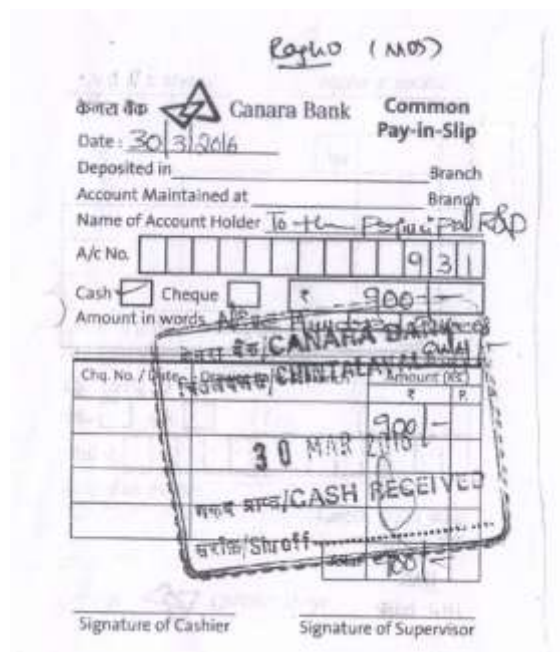 Raghu (MOS)
केनरा बैंक Canara Bank Common
Pay-in-Slip
Date: 30 3 2016
Deposited in Branch
Account Maintained at Branch
Name of Account Holder To the Principal
A/c No. 931
Cash Cheque ₹ 900-
Amount in words Nine Hundred Rupees
only
केनरा बैंक/CANARA BANK
Chq. No. / Date Amount (Rs.)
₹ P.
900/-
30 MAR 2016
नकद प्राप्त/CASH RECEIVED
सराफ/Shroff
900/-
Signature of Cashier Signature of Supervisor